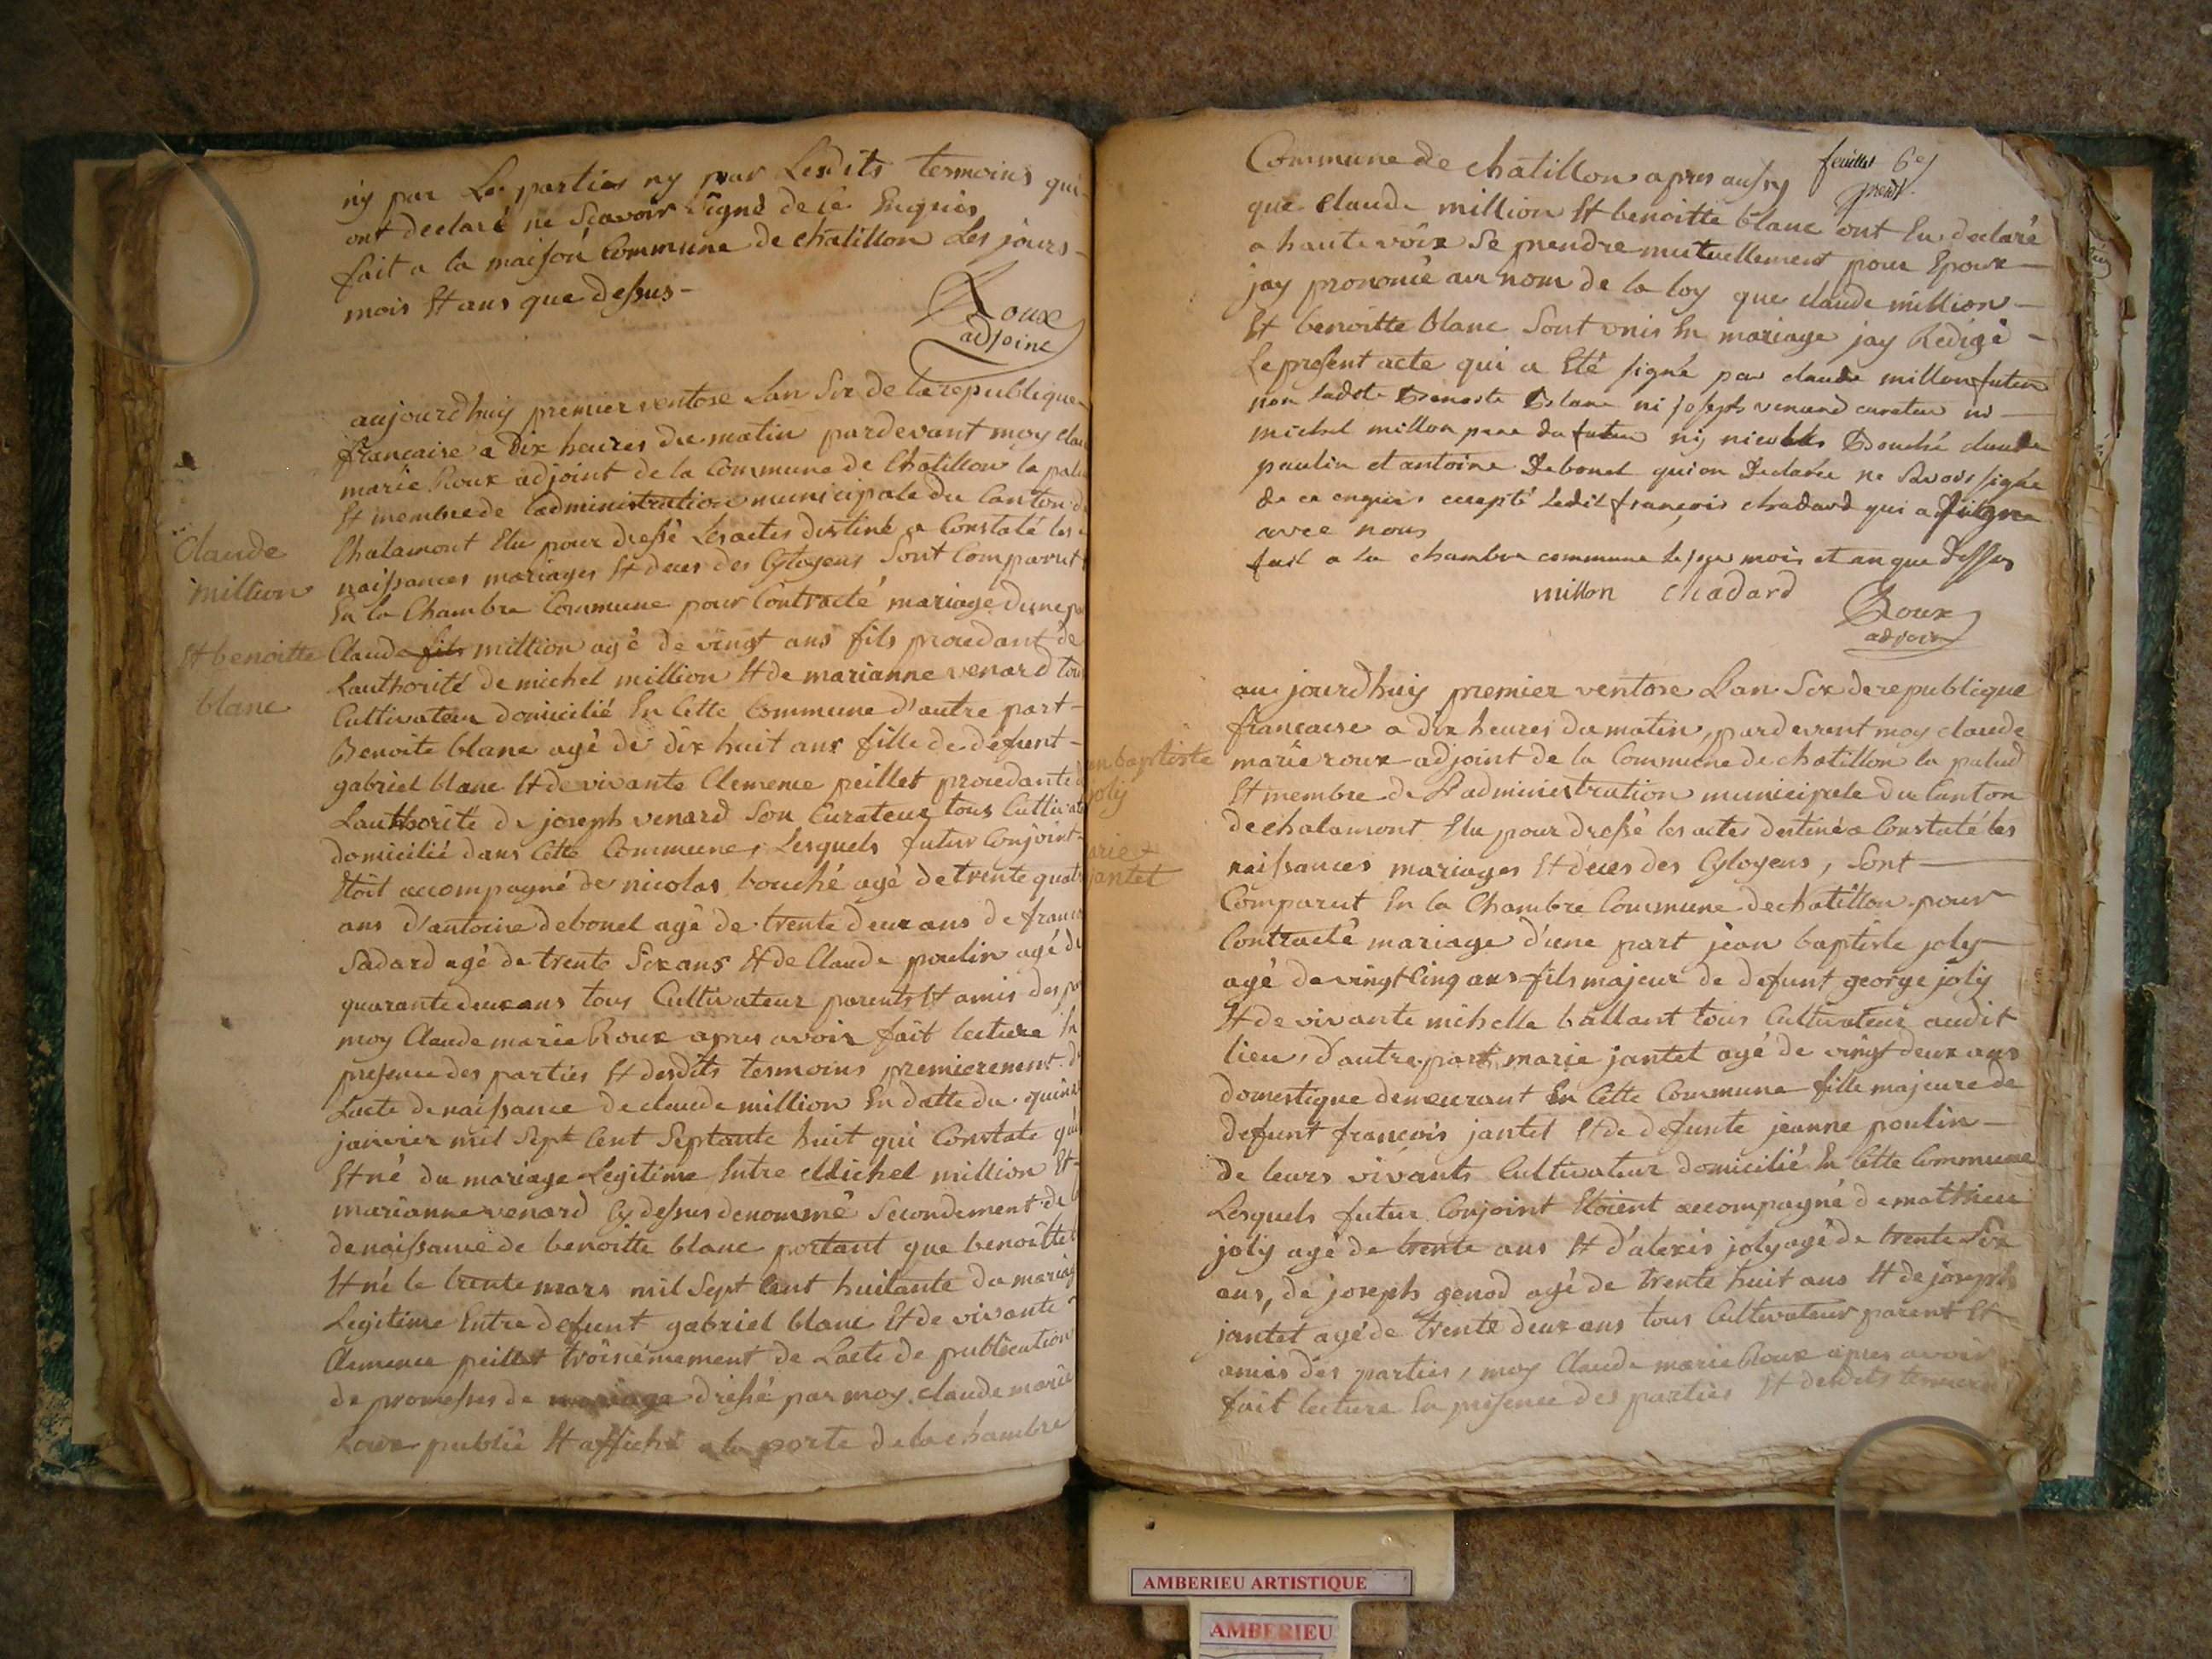 ny par Les parties ny par Lesdits temoins qui
ont declaré ne Scavoir Signé de ce Enquis
fait a la maison Commune de chatillon Les jours
mois Et ans que dessus
Roux
adjoint
aujourdhuy premier ventose Lan Six de la republique
francaise a Dix heures du matin pardevant moy clau
marie Roux adjoint de la Commune de Chatillon la palu
Et membre de Ladministration municipale du Canton d
Chalamont Elu pour dressé Les actes destiné a Constaté les
naissances mariages Et deces des Cytoyens Sont Comparut
En la Chambre Commune pour Contracté mariage dune pa
Claude
million
Et benoitte
blanc
Claude fils million agé de vingt ans fils procedant de
Lauthorité de michel million Et de marianne venard tou
Cultivateur domicilié En Cette Commune d'autre part
Benoite blanc agé de dix huit ans fille de defunt
gabriel blanc Et de vivante Clemence peillet procedante d
Lauthorité de joseph venard Son Curateur tous Cultivate
domicilié dans Cette Commune, Lesquels futur Conjoint
Etoit accompagné de nicolas bouché agé de trente quatr
ans d'antoine debonel agé de trente deux ans de franco
Sadard agé de trente Six ans Et de Claude poulin agé de
quarante deux ans tous Cultivateur parents Et amis des pa
moy Claude marie Roux apres avoir fait lecture En
presence des parties Et desdits temoins premierement d
Lacte de naissance de claude million En datte du quinze
janvier mil Sept Cent Septante huit qui Constate qui
Et né du mariage Legitime Entre Michel million Et
marianne venard Cy dessus denommé Secondement de
de naissance de benoitte blanc portant que benoitte
Et né le trente mars mil Sept Cent huitante du mariag
Legitime Entre defunt gabriel blanc Et de vivante
Clemence peillet troisiemement de Lacte de publication
de promesses de mariage dressé par moy claude marie
Roux publié Et affiché a la porte de la chambre
feuillet 6e
Commune de chatillon apres aussy
que claude million Et benoitte blanc ont Eu declaré
a haute voix Se prendre mutuellement pour Epoux
jay prononcé au nom de la loy que claude million
Et benoitte blanc Sont unis En mariage jay Redigé
Le present acte qui a Eté signé par claude millon futur
non ladte Benoite Blanc ni joseph venard curateur ni
michel millon pere du futur ny nicolas Bouché claude
paulin et antoine Debonel qui on Declaré ne Savoir signé
de ce enquis excepté Ledit françois chadard qui a signe
avec nous
fait a la chambre commune le jour mois et an que dessus
millon chadard
Roux
adjoint
an baptiste
joly
arie
jantet
aujourdhuy premier ventose Lan Six de republique
francaise a dix heures du matin, pardevant moy claude
marie roux adjoint de la Commune de chatillon la palud
Et membre de L'administration municipale du Canton
de chalamont Elu pour dressé les actes destiné a Constaté les
naissances mariages Et deces des Cytoyens, Sont
Comparut En la Chambre Commune de chatillon pour
Contracté mariage d'une part jean baptiste joly
agé de vingt Cinq ans fils majeur de defunt george joly
Et de vivante michelle ballant tous Cultivateur audit
lieu, d'autre part marie jantet agé de vingt deux ans
domestique demeurant En Cette Commune fille majeure de
defunt francois jantet Et de defunte jeanne poulin
de leurs vivants Cultivateur domicilié En Cette Commune
Lesquels futur Conjoint Etoient accompagné de matthieu
joly agé de trente ans Et d'alexis joly agé de trente Six
ans, de joseph genod agé de trente huit ans Et de joseph
jantet agé de trente deux ans tous Cultivateur parent Et
amis des parties, moy Claude marie Roux apres avoir
fait lecture En presence des parties Et desdits temoins
AMBERIEU ARTISTIQUE
AMBERIEU